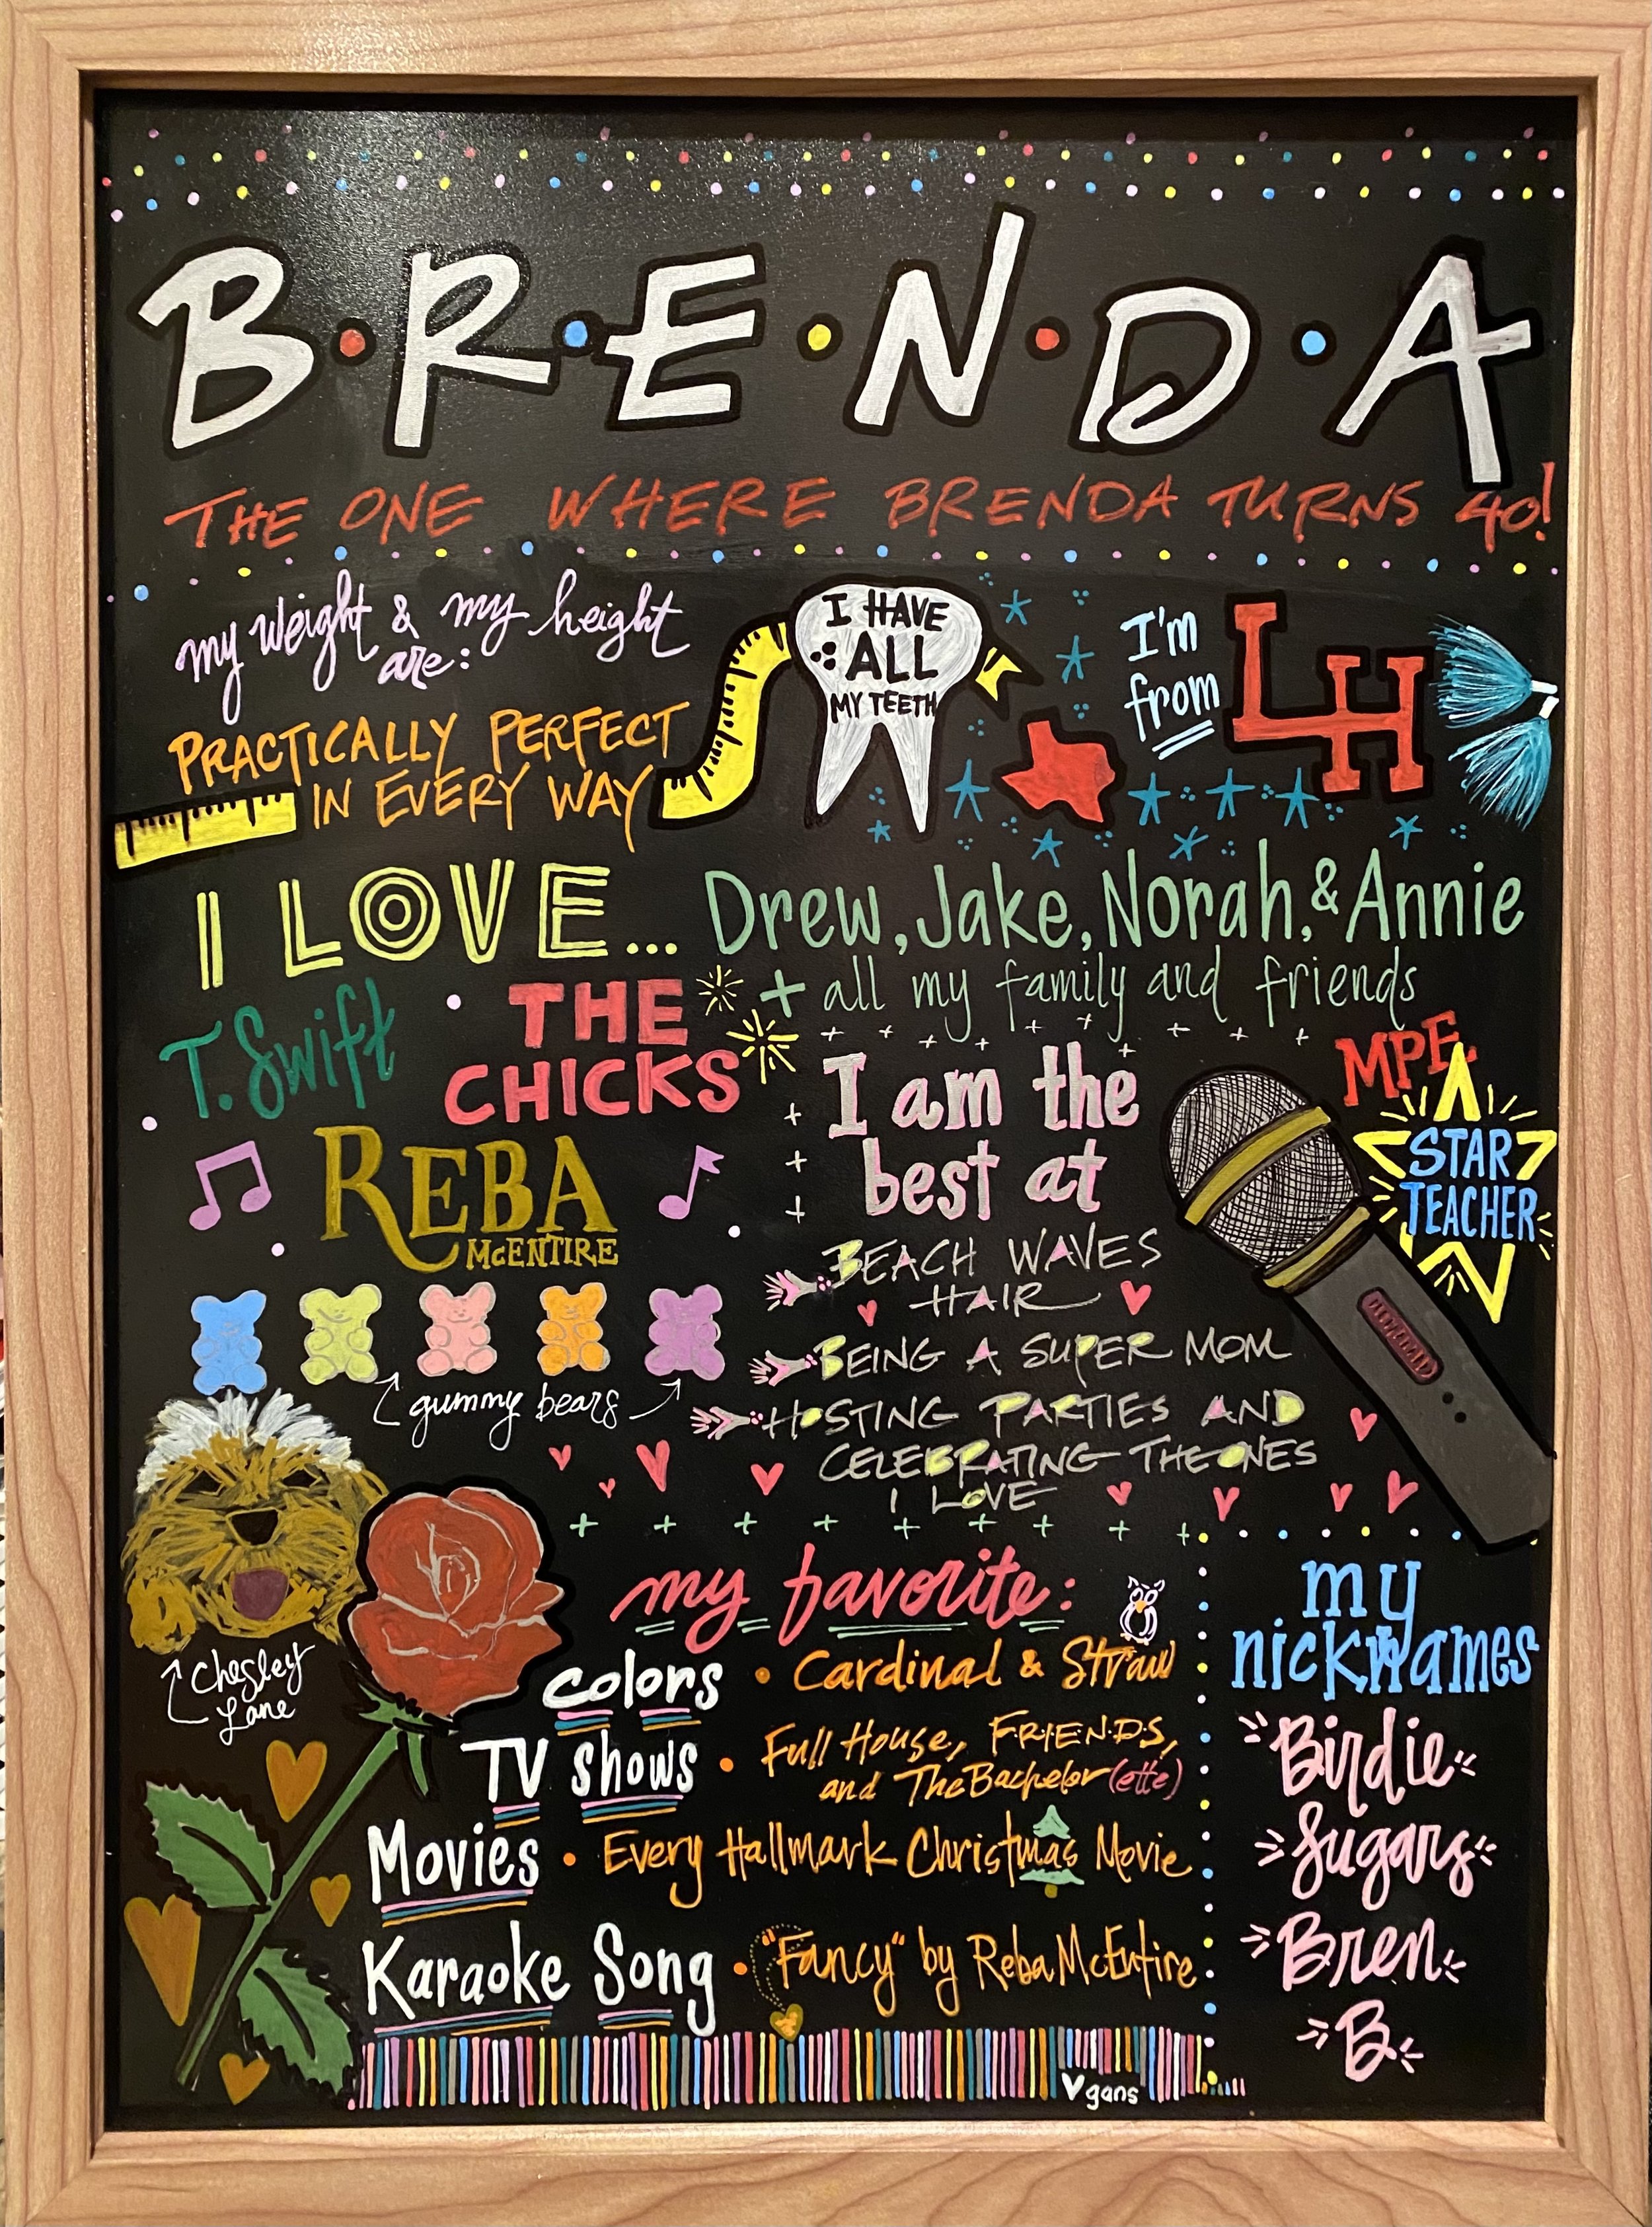 B•R•E•N•D•A
THE ONE WHERE BRENDA TURNS 40!
my weight & my height
are:
PRACTICALLY PERFECT
IN EVERY WAY
I HAVE
ALL
MY TEETH
I'm
from
LH
I LOVE... Drew, Jake, Norah, & Annie
+ all my family and friends
T. Swift
THE
CHICKS
REBA
McENTIRE
gummy bears
I am the
best at
BEACH WAVES
HAIR
BEING A SUPER MOM
HOSTING PARTIES AND
CELEBRATING THE ONES
I LOVE
MPE
STAR
TEACHER
Chesley
Lane
my favorite:
colors • Cardinal & Straw
TV shows • Full House, F•R•I•E•N•D•S,
and The Bachelor (ette)
Movies • Every Hallmark Christmas Movie
Karaoke Song • "Fancy" by Reba McEntire
my
nicknames
Birdie
Sugars
Bren
B
gans